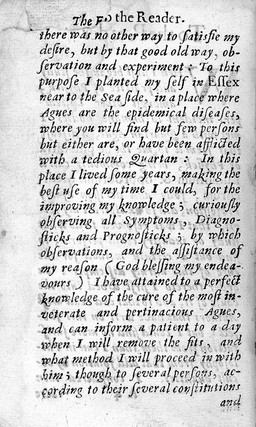 The to the Reader.
there was no other way to ſatisfie my
deſire, but by that good old way, ob-
ſervation and experiment: To this
purpoſe I planted my ſelf in Eſſex
near to the Sea ſide, in a place where
Agues are the epidemical diſeaſes,
where you will find but few perſons
but either are, or have been afflicted
with a tedious Quartan: In this
place I lived ſome years, making the
beſt uſe of my time I could, for the
improving my knowledge; curiouſly
obſerving all Symptoms, Diagno-
ſticks and Prognoſticks; by which
obſervations, and the aſſiſtance of
my reaſon (God bleſſing my endea-
vours) I have attained to a perfect
knowledge of the cure of the moſt in-
veterate and pertinacious Agues,
and can inform a patient to a day
when I will remove the fits, and
what method I will proceed in with
him; though to ſeveral perſons, ac-
cording to their ſeveral conſtitutions
and